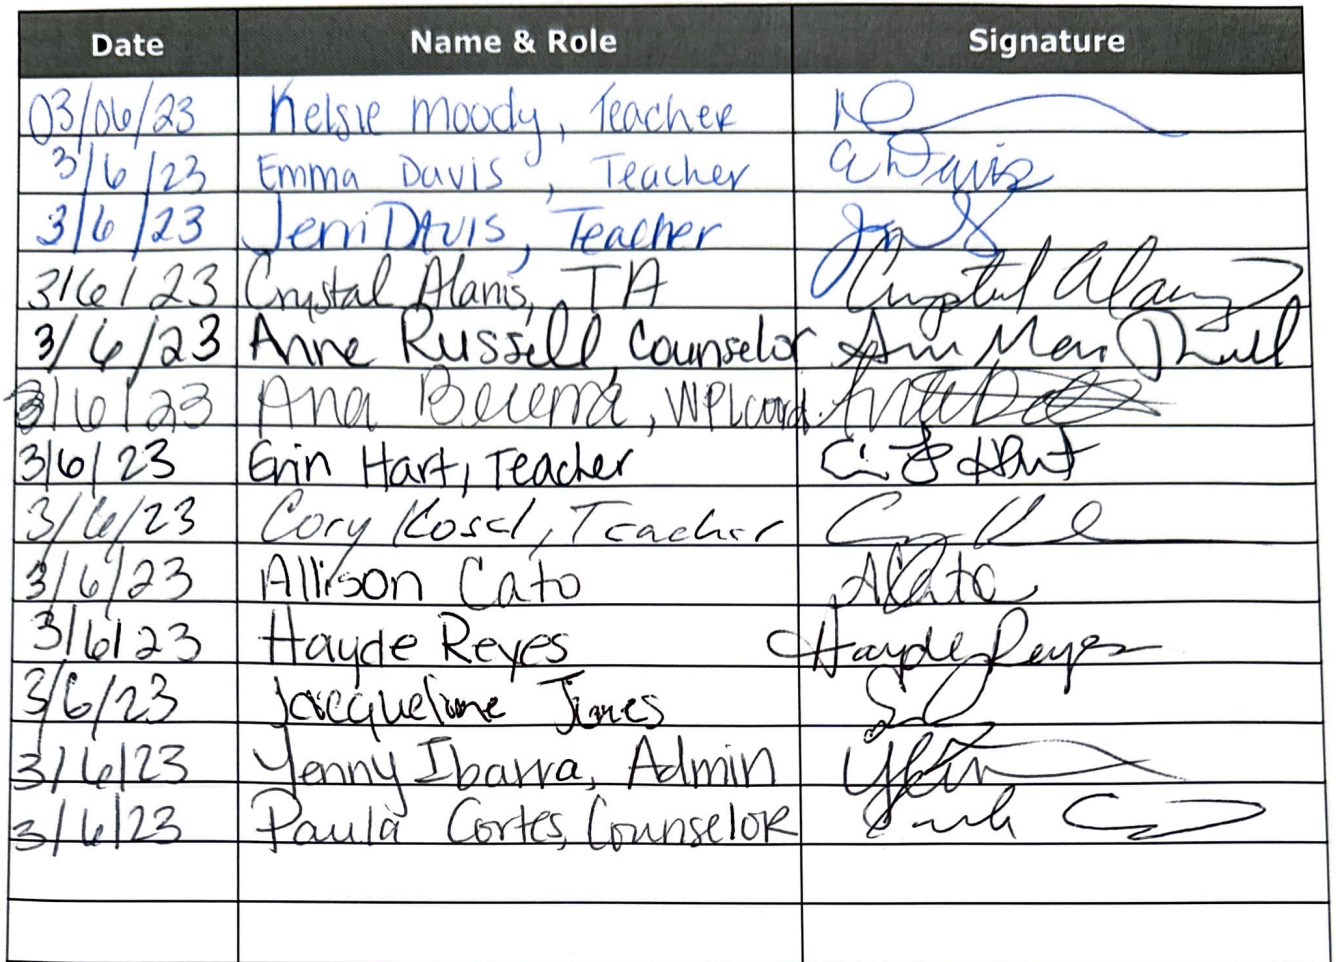 Date Name & Role Signature
03/06/23 Kelsie Moody, Teacher
3/6/23 Emma Davis, Teacher EDavis
3/6/23 Jerri DAvis, Teacher
3/6/23 Crystal Alanis, TA Crystal Alanis
3/6/23 Anne Russell, Counselor
3/6/23 Ana Becerra, WPLcoord.
3/6/23 Erin Hart, Teacher Hart
3/6/23 Cory Kosel, Teacher
3/6/23 Allison Cato ACato
3/6/23 Hayde Reyes Hayde Reyes
3/6/23 Jacqueline
3/6/23 Yenny Ibarra, Admin
3/6/23 Paula Cortes, Counselor